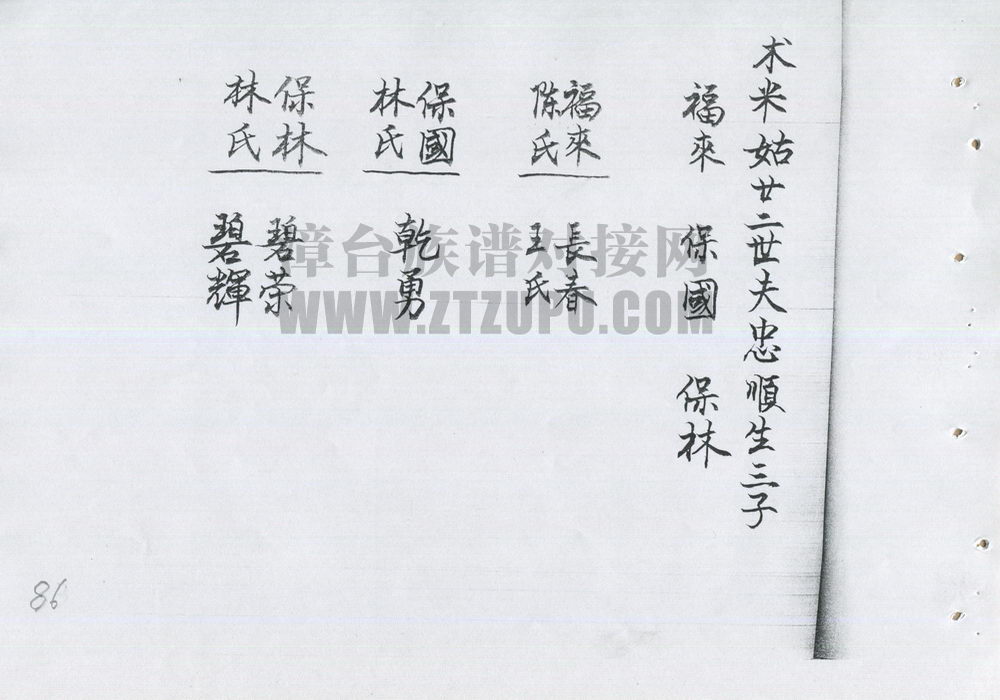 朮米姑廿二世夫忠順生三子
福來 保國 保林
福來 長春
陈氏 王氏
保國 乾勇
林氏
保林 碧荣
林氏 碧輝
漳台族谱对接网
WWW.ZTZUPU.COM
86